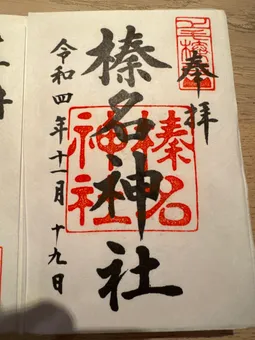 奉拝
榛名神社
榛名神社
令和四年十一月十九日